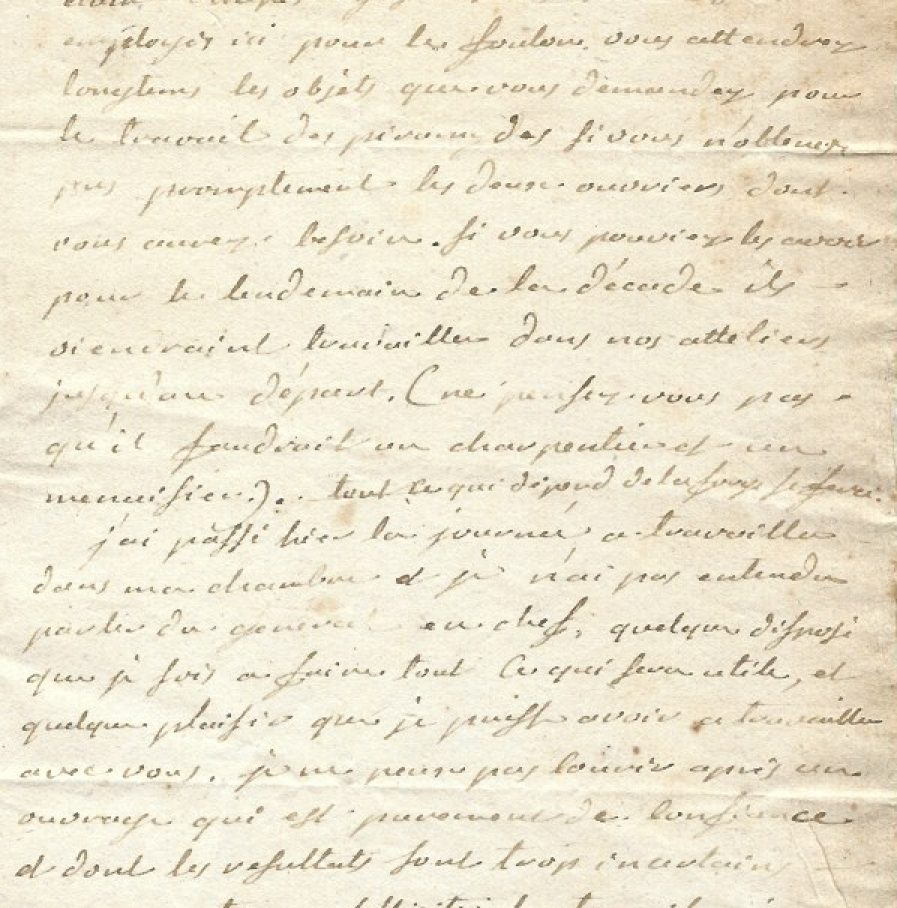 employés ici pour le foulon, vous attendrez
longtems les objets que vous demandez pour
le travail des piramides si vous n'obtenez
pas promptement les deux ouvriers dont
vous avez besoin. si vous pouviez les avoir
pour le lendemain de la décade ils
viendraint travailler dans nos atteliers
jusqu'au départ. (ne pensez vous pas
qu'il faudroit un charpentier et un
menuisier). tout ce qui dépend de la
j'ai passé hier la journée a travailler
dans ma chambre et je n'ai pas entendu
parler du général en chef, quelque disposé
que je sois a faire tout ce qui sera utile, et
quelque plaisir que je puisse avoir a travailler
avec vous, je ne peux pas courir après un
ouvrage qui est purement de confiance
et dont les resultats sont trop incertains